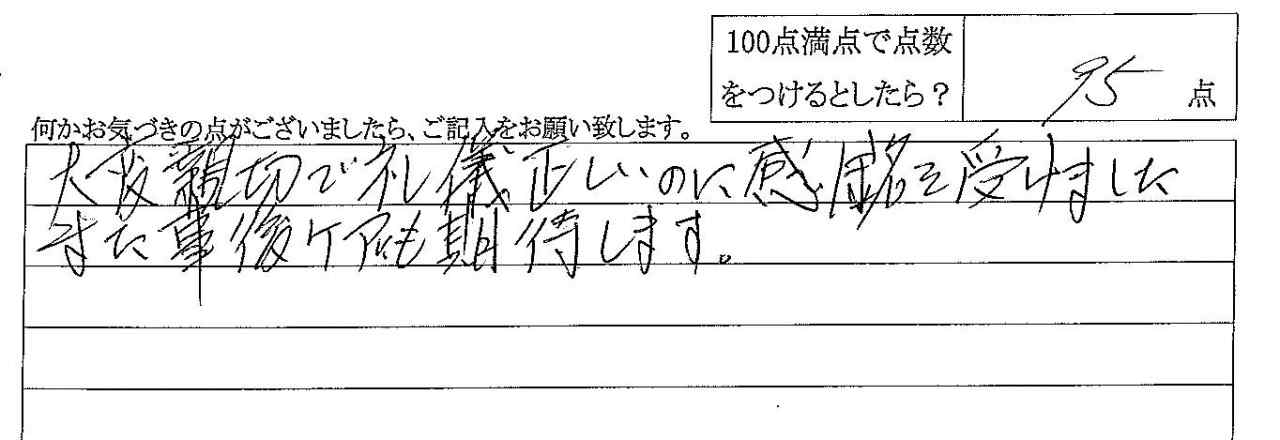 100点満点で点数
をつけるとしたら？
95 点
何かお気づきの点がございましたら、ご記入をお願い致します。
大変親切で礼儀正しいのに感銘を受けました
また事後ケアーも期待します。